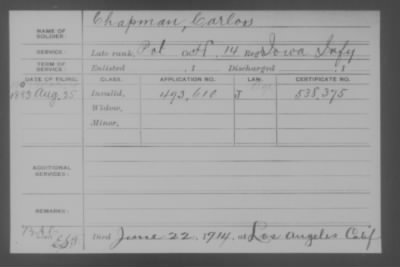 Chapman, Carlos
NAME OF
SOLDIER:
SERVICE: Late rank, Pvt Co. H, 14 Reg Iowa Infy
TERM OF
SERVICE: Enlisted , 1 Discharged , 1
DATE OF FILING. CLASS. APPLICATION NO. LAW. CERTIFICATE NO.
Aug. 25 Invalid, 493,610 J 538,375
Widow,
Minor,
ADDITIONAL
SERVICES:
REMARKS:
Died June 22, 1914, at Los Angeles Calif